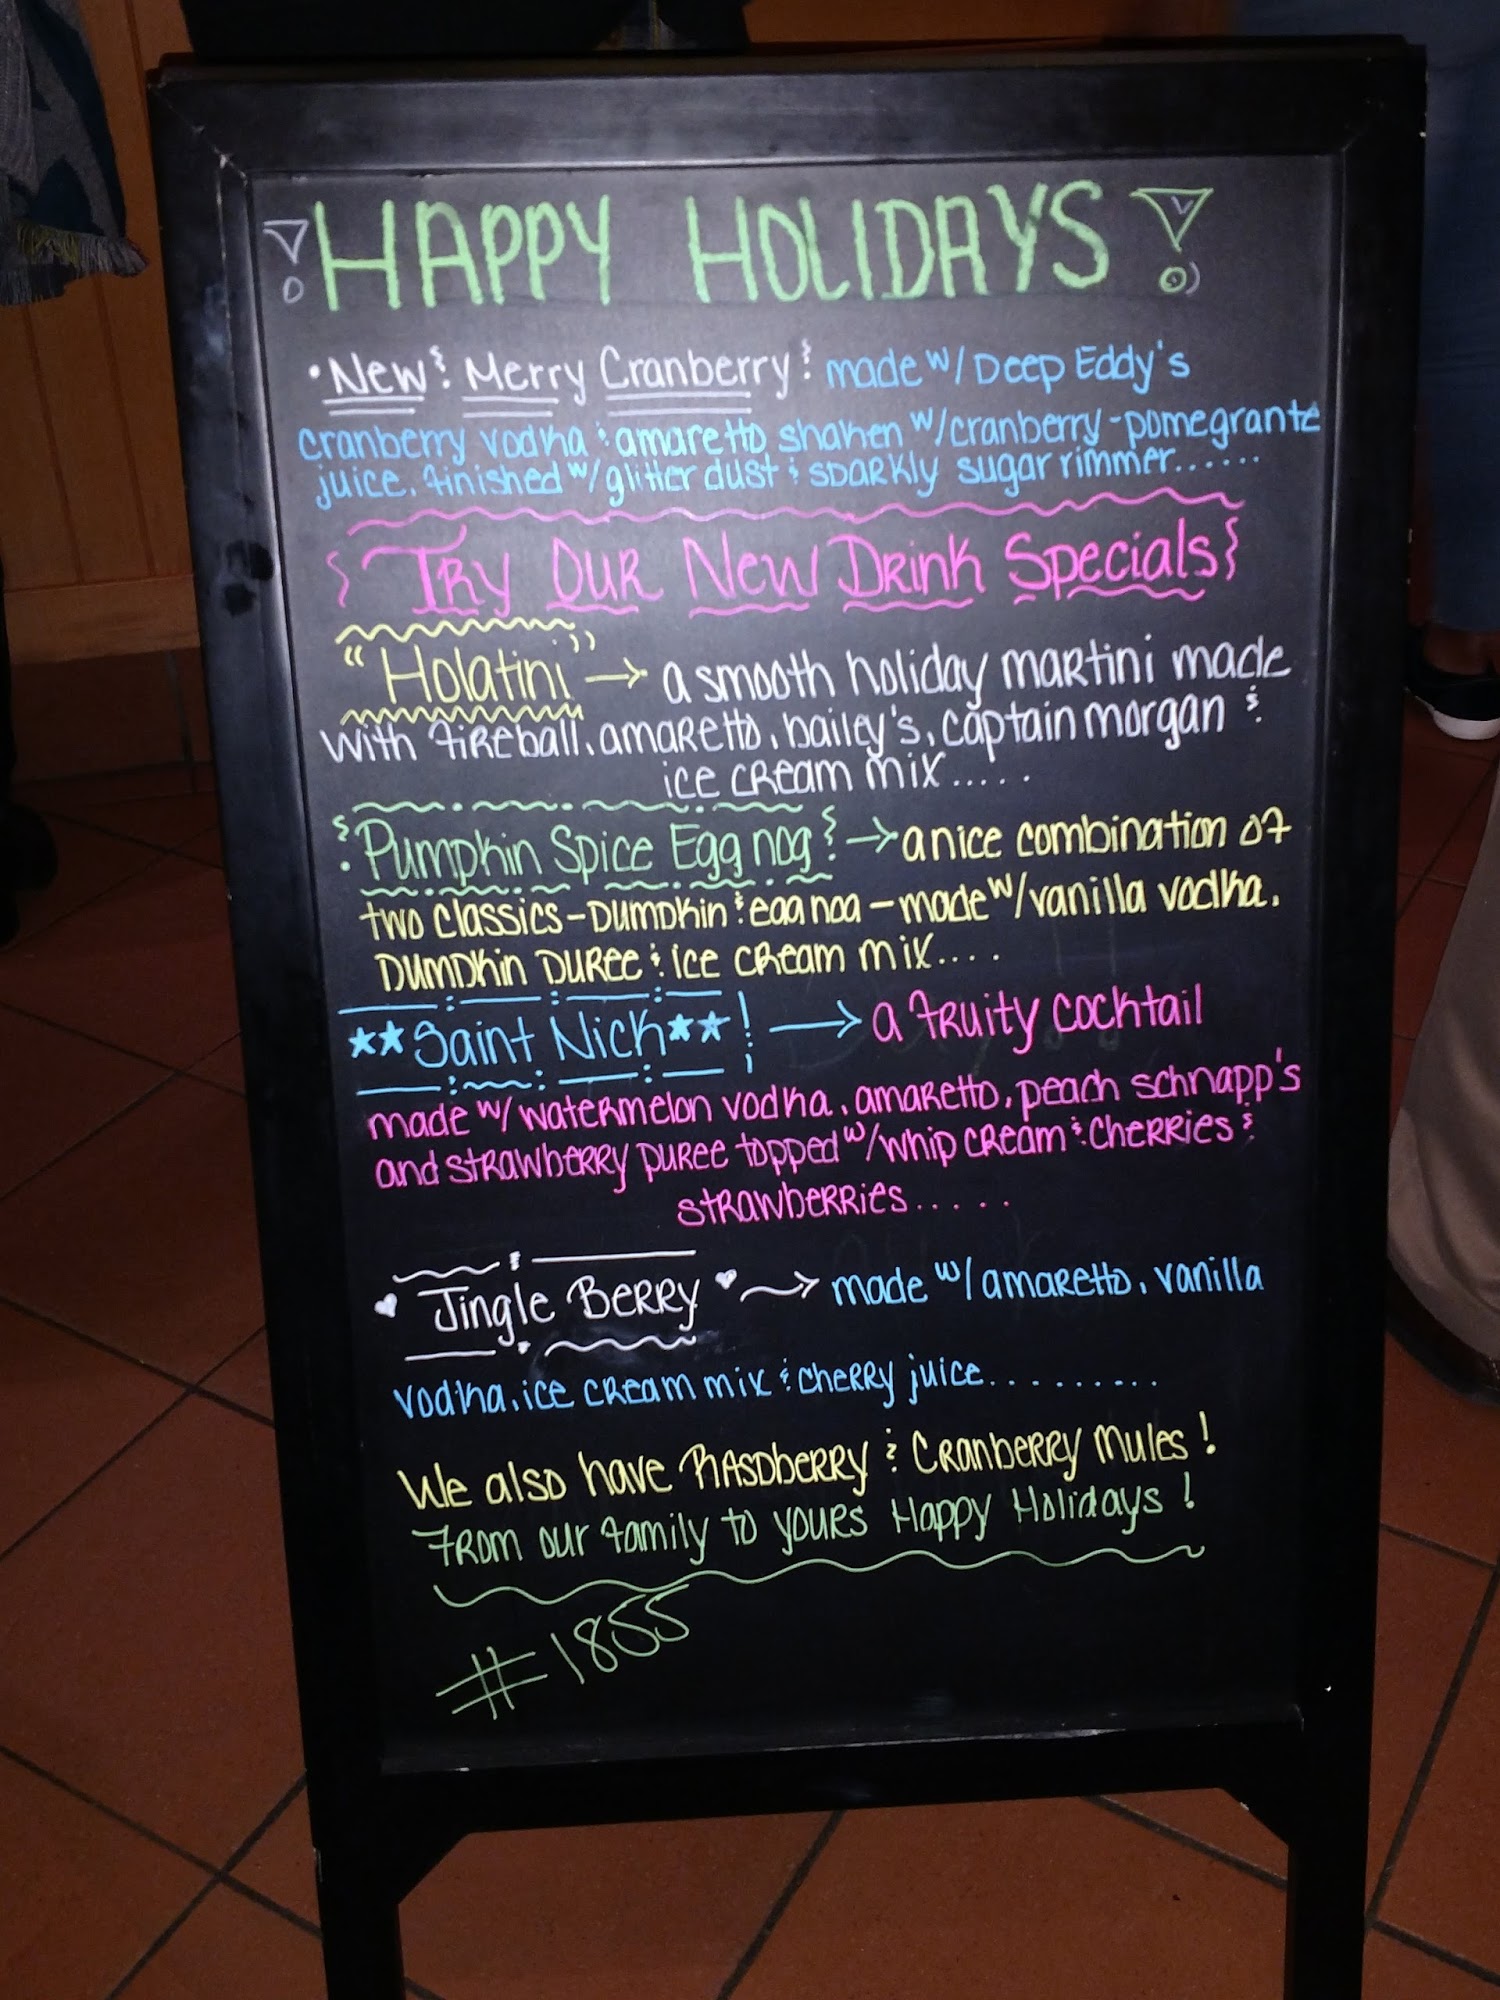 ! HAPPY HOLIDAYS !
• New & Merry Cranberry & made w/ Deep Eddy's
cranberry vodka & amaretto shaken w/ cranberry-pomegrante
juice, finished w/ glitter dust & sparkly sugar rimmer......
{ Try Our New Drink Specials }
"Holatini" → a smooth holiday martini made
with fireball, amaretto, bailey's, captain morgan &
ice cream mix.....
Pumpkin Spice Egg nog → a nice combination of
two classics - pumpkin & egg nog - made w/ vanilla vodka,
pumpkin puree & ice cream mix....
**Saint Nick** → a fruity cocktail
made w/ watermelon vodka, amaretto, peach schnapp's
and strawberry puree topped w/ whip cream & cherries &
strawberries.....
♥ Jingle Berry ♥ → made w/ amaretto, vanilla
vodka, ice cream mix & cherry juice.........
We also have Raspberry & Cranberry Mules!
From our family to yours Happy Holidays!
#1855